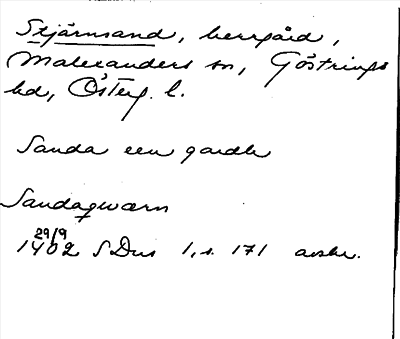 Stjärnsand, herrgård,
Malexanders sn, Göstrings
hd, Österg. l.
Sanda een gardh
Sandaqwærn
29/9
1402 SDns 1, s. 171 avskr.